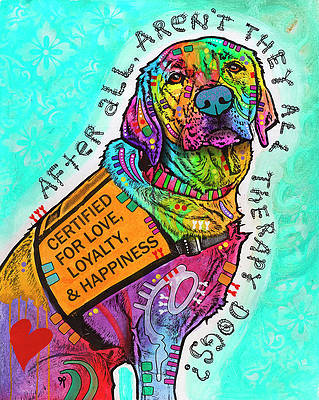 AFTER ALL, AREN'T THEY ALL THERAPY DOGS?
CERTIFIED
FOR LOVE,
LOYALTY,
& HAPPINESS